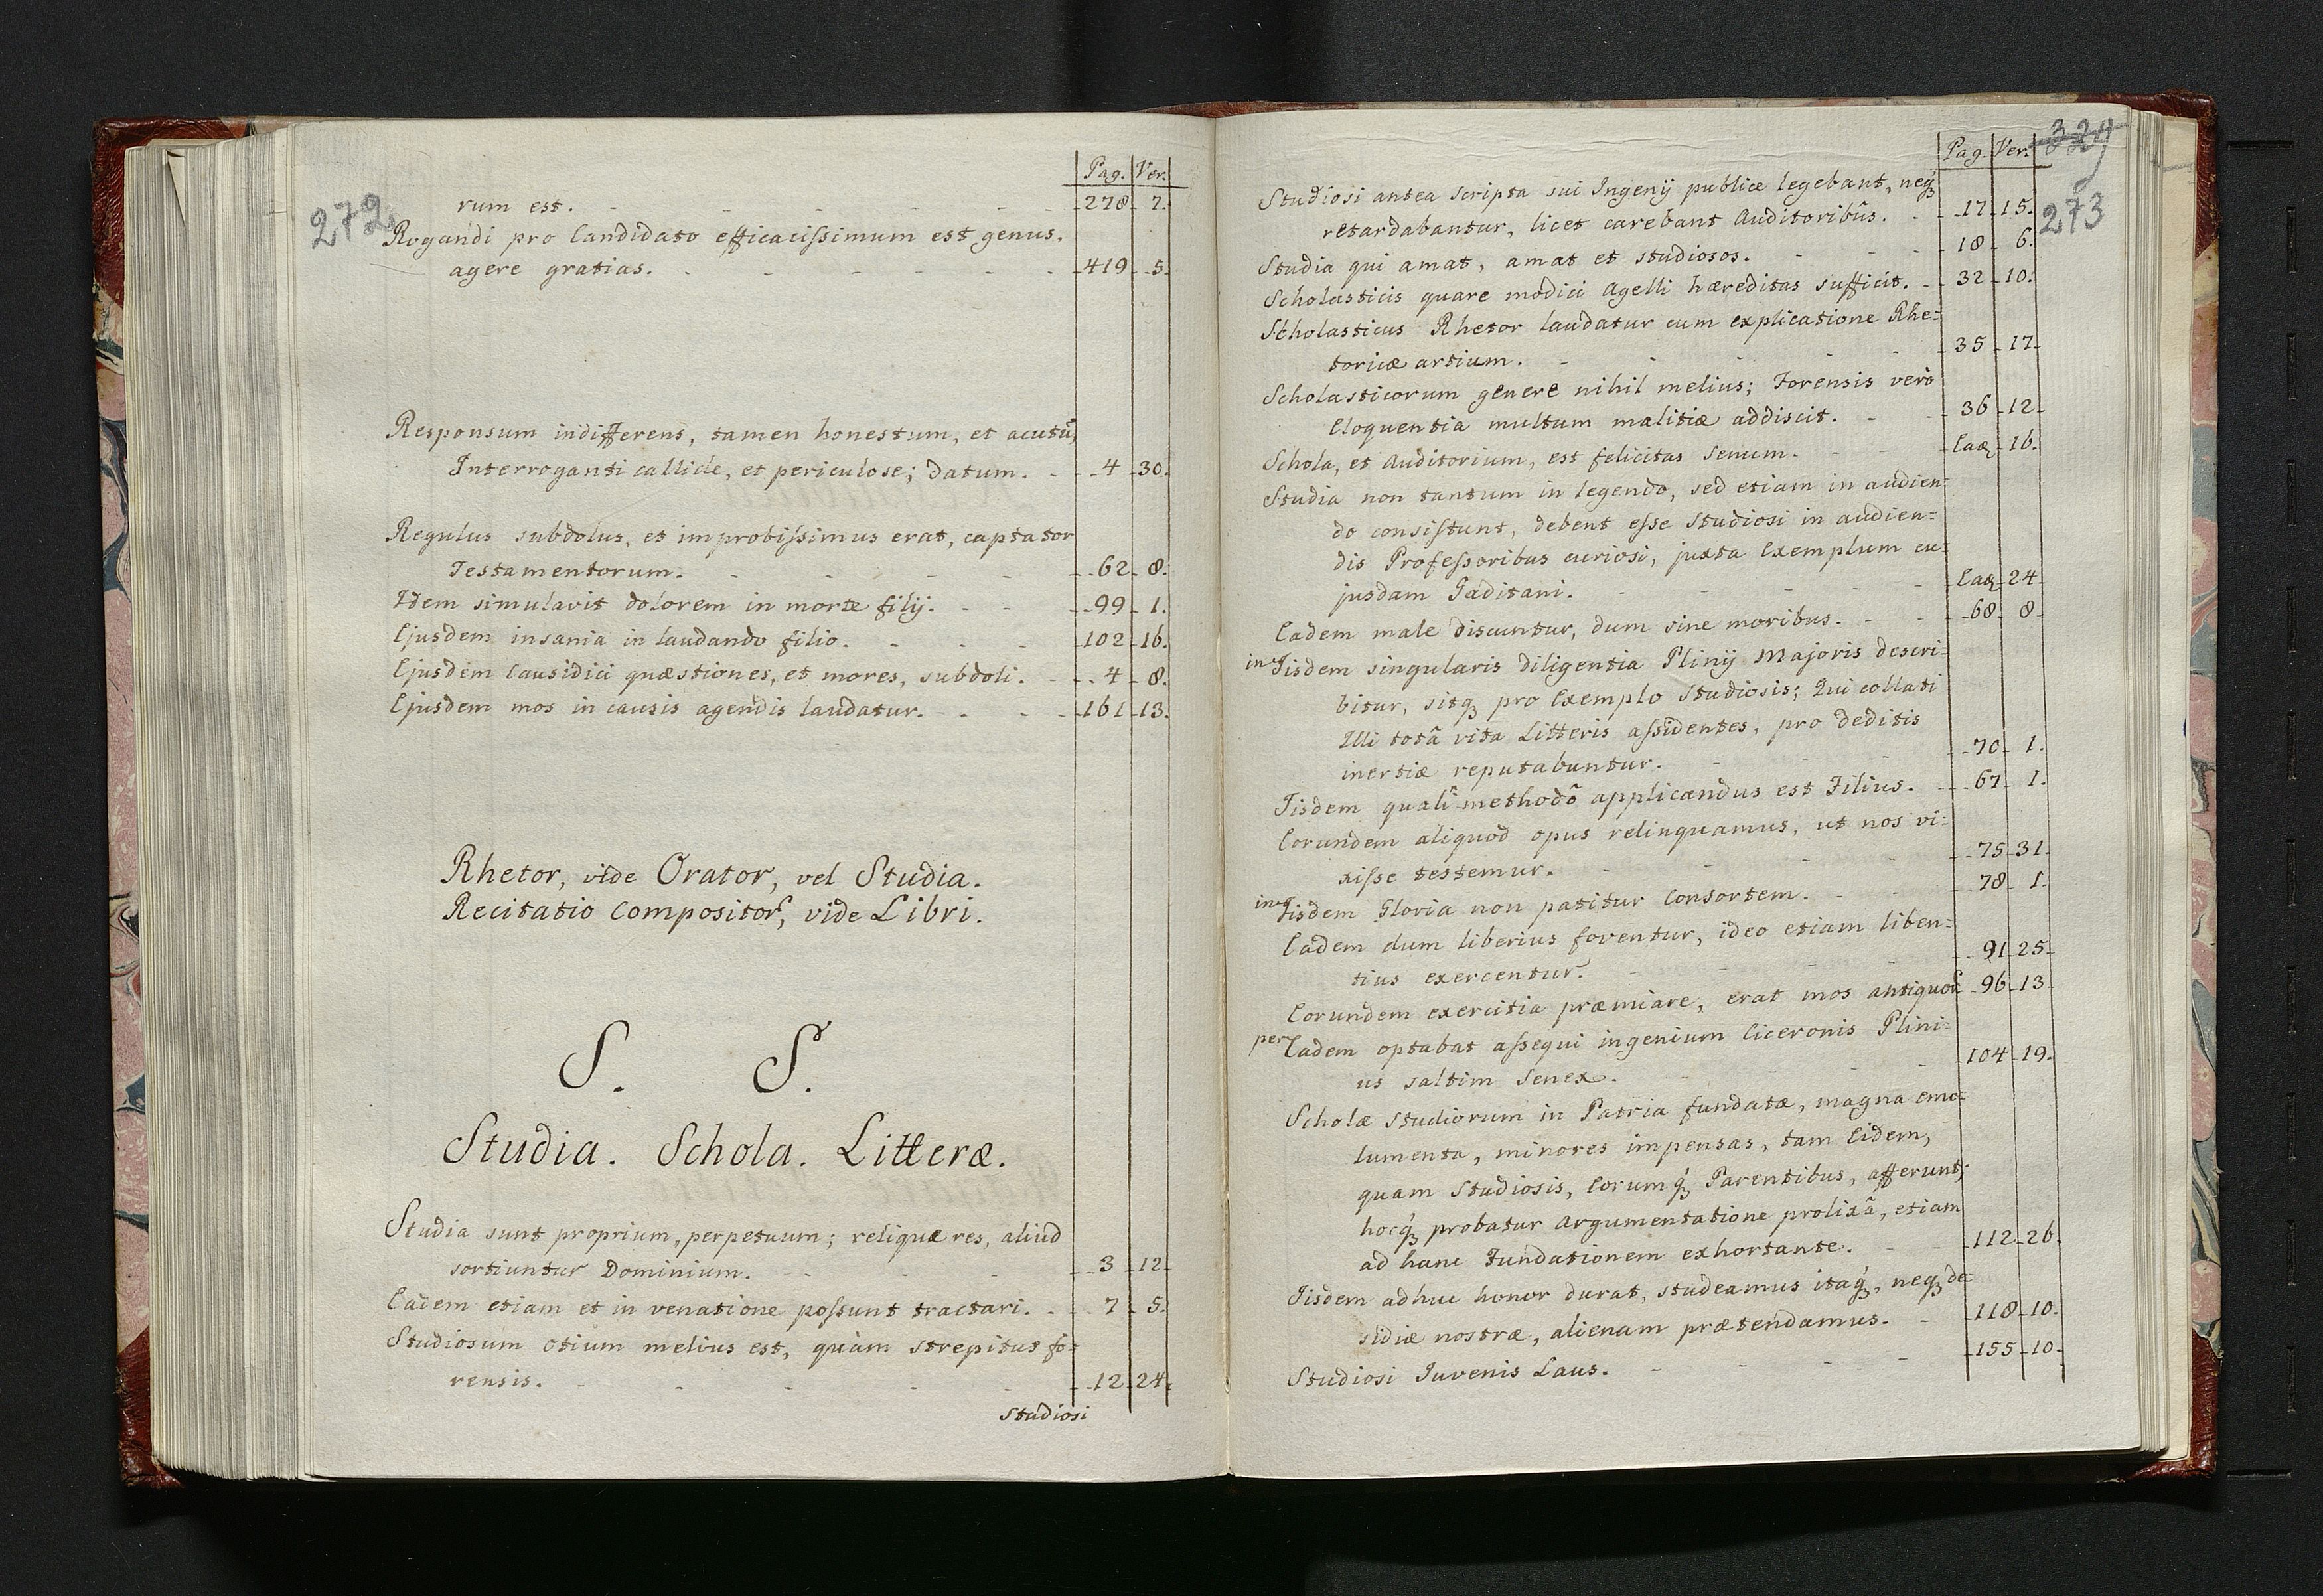 272
Pag. Ver.
rum est. 278 7.
Rogandi pro Candidato efficacissimum est genus,
agere gratias. 419 5.
Responsum indifferens, tamen honestum, et acutũ,
Interroganti callide, et periculose; datum. 4 30.
Regulus subdolus, et improbissimus erat, captator
Testamentorum. 62 8.
Idem simulavit dolorem in morte filij. 99 1.
Ejusdem insania in laudando filio. 102 16.
Ejusdem Causidici quæstiones, et mores, subdoli. 4 8.
Ejusdem mos in causis agendis laudatur. 161 13.
Rhetor, vide Orator, vel Studia.
Recitatio Compositor, vide Libri.
S. S.
Studia. Schola. Litteræ.
Studia sunt proprium, perpetuum; reliquæ res, aliud
sortiuntur Dominium. 3 12
Eadem etiam et in venatione possunt tractari. 7 5.
Studiosum otium melius est, quàm strepitus fo=
rensis. 12 24.
Studiosi
329
273
Pag. Ver.
Studiosi antea scripta sui Ingenij publice legebant, neq́ꝫ
retardabantur, licet carebant Auditoribûs. 17 15.
Studia qui amat, amat et studiosos. 18 6.
Scholasticis quare modici Agelli hæreditas sufficit. 32 10.
Scholasticus Rhetor laudatur cum explicatione Rhe=
toricæ artium. 35 17
Scholasticorum genere nihil melius; Forensis verò
Eloquentia multum malitiæ addiscit. 36 12
Schola, et Auditorium, est felicitas Senum. Eaꝫ 16.
Studia non tantum in legendo, sed etiam in audien=
do consistunt, debent esse Studiosi in audien=
dis Professoribus curiosi, juxta Exemplum cu=
jusdam Gaditani. Eaꝫ 24
Eadem male discuntur, dum sine moribus. 68 8
in Iisdem singularis diligentia Plinij Majoris descri=
bitur, sitqꝫ pro Exemplo Studiosis; Qui collati
Illi totâ vita Litteris assidentes, pro deditis
inertiæ reputabuntur. 70 1.
Iisdem qualî methodô applicandus est Filius. 67 1.
Eorundem aliquod opus relinquamus, ut nos vi=
xisse testemur. 75 31
in Iisdem Gloria non patitur Consortem. 78 1
Eadem dum liberius foventur, ideo etiam liben=
tius exercentur. 91 25
Eorundem exercitia præmiare, erat mos antiquor 96 13
per Eadem optabat assequi ingenium Ciceronis Plini=
us saltim Senex. 104 19.
Scholæ Studiorum in Patria fundatæ, magna emo=
lumenta, minores impensas, tam Eidem,
quam Studiosis, Eorumq́ꝫ Parentibus, afferunt;
hocq́ꝫ probatur Argumentatione prolixâ, etiam
ad hanc Fundationem exhortante. 112 26.
Iisdem adhuc honor durat, studeamus itaq́ꝫ, neqꝫ de=
sidiæ nostræ, alienam prætendamus. 118 10.
Studiosi Juvenis Laus. 155 10